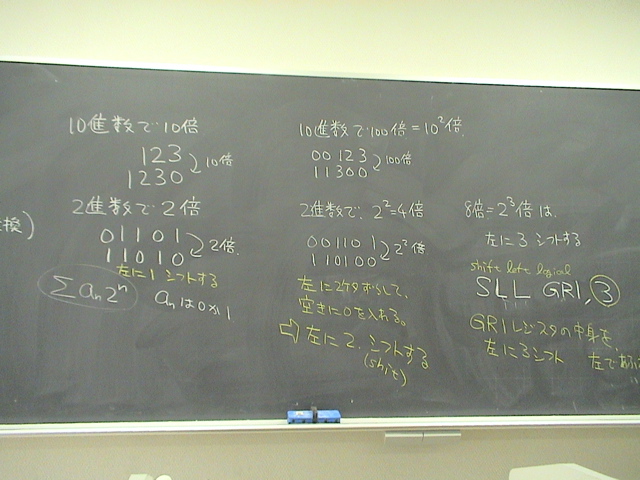 換)
10進数で10倍
123
1230
10倍
2進数で2倍
01101
11010
2倍
左に1シフトする
Σan2^n
anは0か1
10進数で100倍=10²倍
00123
11300
100倍
2進数で、2²=4倍
001101
110100
2²倍
左に2ケタずらして、
空きに0を入れる。
⇨左に2シフトする
(shift)
8倍=2³倍は
左に3シフトする
shift left logial
SLL GR1, 3
GR1レジスタの中身を、
左に3シフト
左で